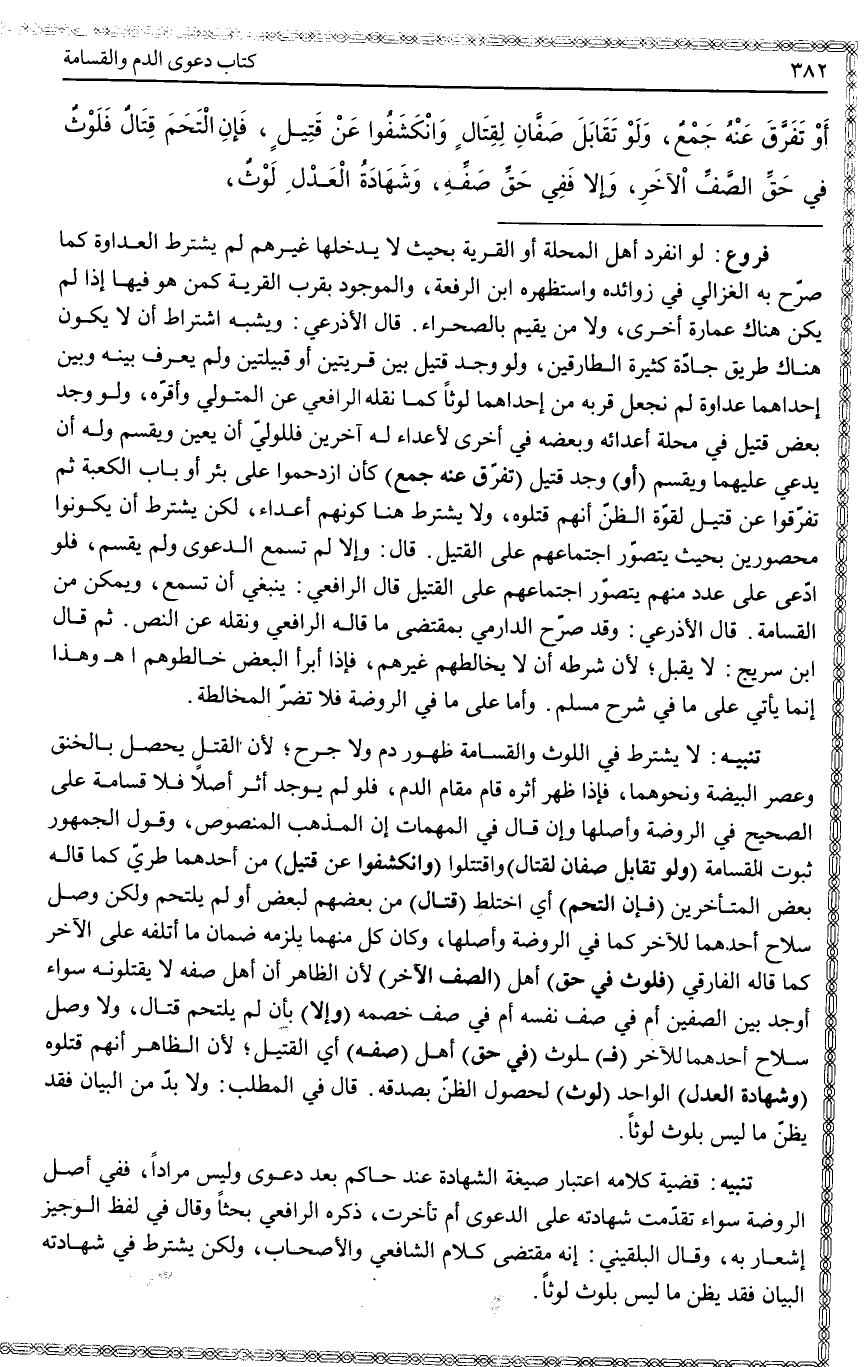 ٣٨٢
كتاب دعوى الدم والقسامة
أَوْ تَفَرَّقَ عَنْهُ جَمْعٌ، وَلَوْ تَقَابَلَ صَفَّانِ لِقِتَالٍ وَانْكَشَفُوا عَنْ قَتِيلٍ، فَإِنِ الْتَحَمَ قِتَالٌ فَلَوْثٌ
في حَقِّ الصَّفِّ الْآخَرِ، وَإلا فَفِي حَقِّ صَفِّهِ، وَشَهَادَةُ الْعَدْلِ لَوْثٌ،
فروع: لو انفرد أهل المحلة أو القرية بحيث لا يدخلها غيرهم لم يشترط العداوة كما
صرّح به الغزالي في زوائده واستظهره ابن الرفعة، والموجود بقرب القرية كمن هو فيها إذا لم
يكن هناك عمارة أخرى، ولا من يقيم بالصحراء. قال الأذرعي: ويشبه اشتراط أن لا يكون
هناك طريق جادّة كثيرة الطارقين، ولو وجد قتيل بين قريتين أو قبيلتين ولم يعرف بينه وبين
إحداهما عداوة لم نجعل قربه من إحداهما لوثاً كما نقله الرافعي عن المتولي وأقرّه، ولو وجد
بعض قتيل في محلة أعدائه وبعضه في أخرى لأعداء له آخرين فللوليّ أن يعين ويقسم وله أن
يدعي عليهما ويقسم (أو) وجد قتيل (تفرّق عنه جمع) كأن ازدحموا على بئر أو باب الكعبة ثم
تفرّقوا عن قتيل لقوّة الظنّ أنهم قتلوه، ولا يشترط هنا كونهم أعداء، لكن يشترط أن يكونوا
محصورين بحيث يتصوّر اجتماعهم على القتيل. قال: وإلا لم تسمع الدعوى ولم يقسم، فلو
ادّعى على عدد منهم يتصوّر اجتماعهم على القتيل قال الرافعي: ينبغي أن تسمع، ويمكن من
القسامة. قال الأذرعي: وقد صرّح الدارمي بمقتضى ما قاله الرافعي ونقله عن النص. ثم قال
ابن سريج: لا يقبل؛ لأن شرطه أن لا يخالطهم غيرهم، فإذا أبرأ البعض خالطوهم ا هـ وهذا
إنما يأتي على ما في شرح مسلم. وأما على ما في الروضة فلا تضرّ المخالطة.
تنبيه: لا يشترط في اللوث والقسامة ظهور دم ولا جرح؛ لأن القتل يحصل بالخنق
وعصر البيضة ونحوهما، فإذا ظهر أثره قام مقام الدم، فلو لم يوجد أثر أصلًا فلا قسامة على
الصحيح في الروضة وأصلها وإن قال في المهمات إن المذهب المنصوص، وقول الجمهور
ثبوت القسامة (ولو تقابل صفان لقتال) واقتتلوا (وانكشفوا عن قتيل) من أحدهما طريّ كما قاله
بعض المتأخرين (فإن التحم) أي اختلط (قتال) من بعضهم لبعض أو لم يلتحم ولكن وصل
سلاح أحدهما للآخر كما في الروضة وأصلها، وكان كل منهما يلزمه ضمان ما أتلفه على الآخر
كما قاله الفارقي (فلوث في حق) أهل (الصف الآخر) لأن الظاهر أن أهل صفه لا يقتلونه سواء
أوجد بين الصفين أم في صف نفسه أم في صف خصمه (وإلا) بأن لم يلتحم قتال، ولا وصل
سلاح أحدهما للآخر (فـ) ـلوث (في حق) أهل (صفه) أي القتيل؛ لأن الظاهر أنهم قتلوه
(وشهادة العدل) الواحد (لوث) لحصول الظنّ بصدقه. قال في المطلب: ولا بدّ من البيان فقد
يظنّ ما ليس بلوث لوثاً.
تنبيه: قضية كلامه اعتبار صيغة الشهادة عند حاكم بعد دعوى وليس مراداً، ففي أصل
الروضة سواء تقدّمت شهادته على الدعوى أم تأخرت، ذكره الرافعي بحثاً وقال في لفظ الوجيز
إشعار به، وقال البلقيني: إنه مقتضى كلام الشافعي والأصحاب، ولكن يشترط في شهادته
البيان فقد يظن ما ليس بلوث لوثاً.